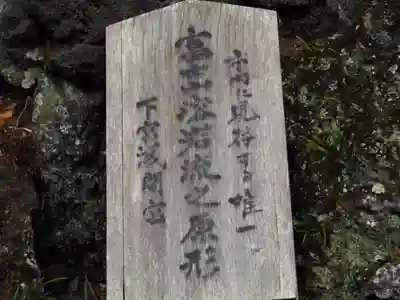 市内に見得可る唯一
富士溶岩流之原形
下宮浅間宮